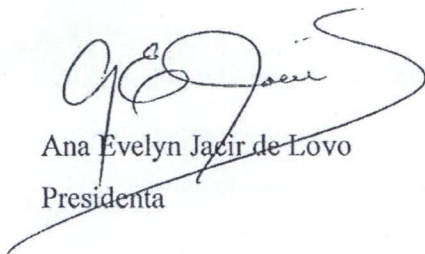 Ana Evelyn Jacir de Lovo
Presidenta